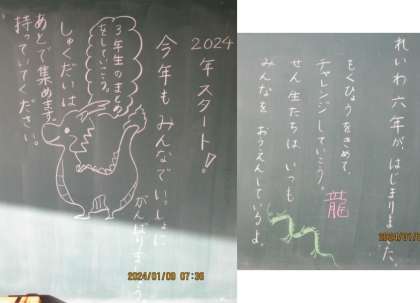 2024年スタート!
今年もみんなでいっしょに
がんばりましょう
3年生のまとめ
をしていこう。
しゅくだいは
あとで集めます。
持っていてください。
2024/01/09 07:36
れいわ 六年が、はじまりました。
もくひょうをきめて、
チャレンジしていこう。
龍
せん生たちは いつも
みんなを おうえんしているよ。